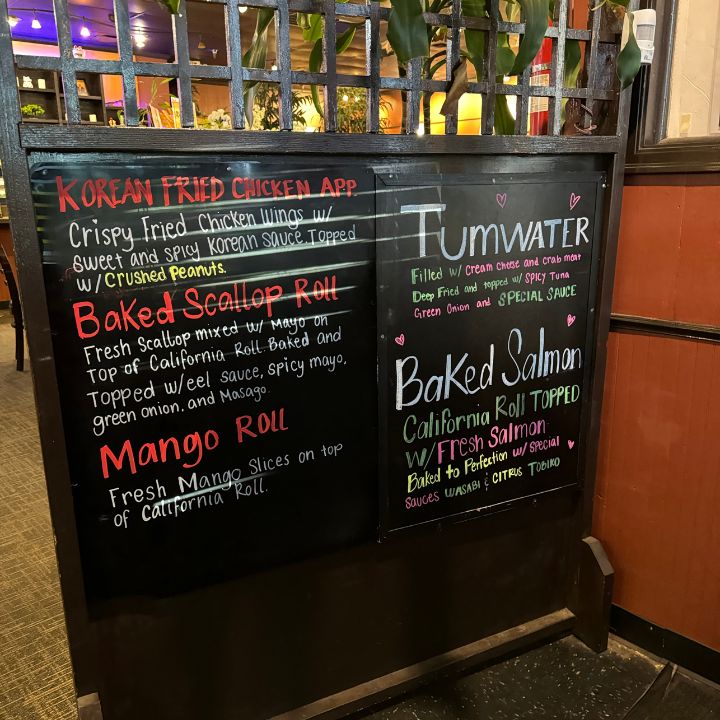 KOREAN FRIED CHICKEN APP
Crispy Fried Chicken Wings w/
sweet and spicy Korean sauce. Topped
w/ Crushed Peanuts.
Baked Scallop Roll
Fresh Scallop mixed w/ Mayo on
Top of California Roll. Baked and
Topped w/eel sauce, spicy mayo,
green onion, and Masago.
Mango Roll
Fresh Mango Slices on top
of California Roll.
TUMWATER
Filled w/ cream cheese and crab meat
Deep Fried and topped w/ SPICY Tuna
Green Onion and SPECIAL SAUCE
Baked Salmon
California Roll TOPPED
w/Fresh Salmon
Baked to Perfection w/ Special
Sauces WASABI & CITRUS TOBIKO